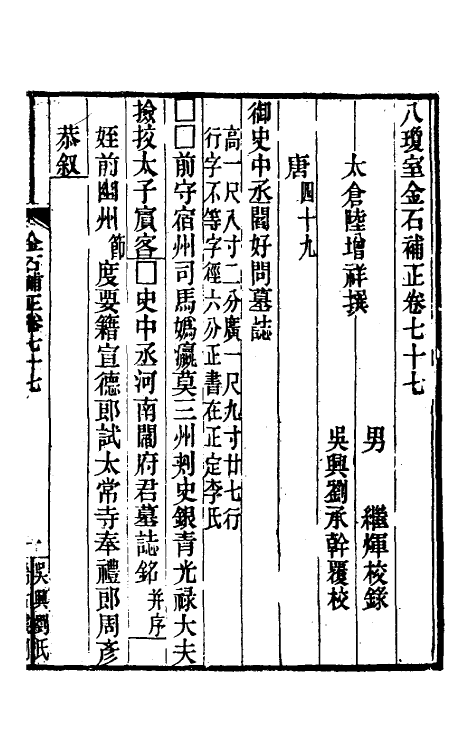 八瓊室金石補正卷七十七
太倉陸增祥撰
男　繼煇校錄
吳興劉承幹覆校
唐四十九
御史中丞閻好問墓誌
高一尺八寸二分廣一尺九寸廿七行
行字不等字徑六分正書在正定李氏
□□前守宿州司馬媯瀛莫三州刾史銀青光祿大夫
撿挍太子賓客□史中丞河南閻府君墓誌銘并序
姪前幽州節度要籍宣德郎試太常寺奉禮郎周彥
恭叙
金石補正卷七十七
一
吳興劉氏